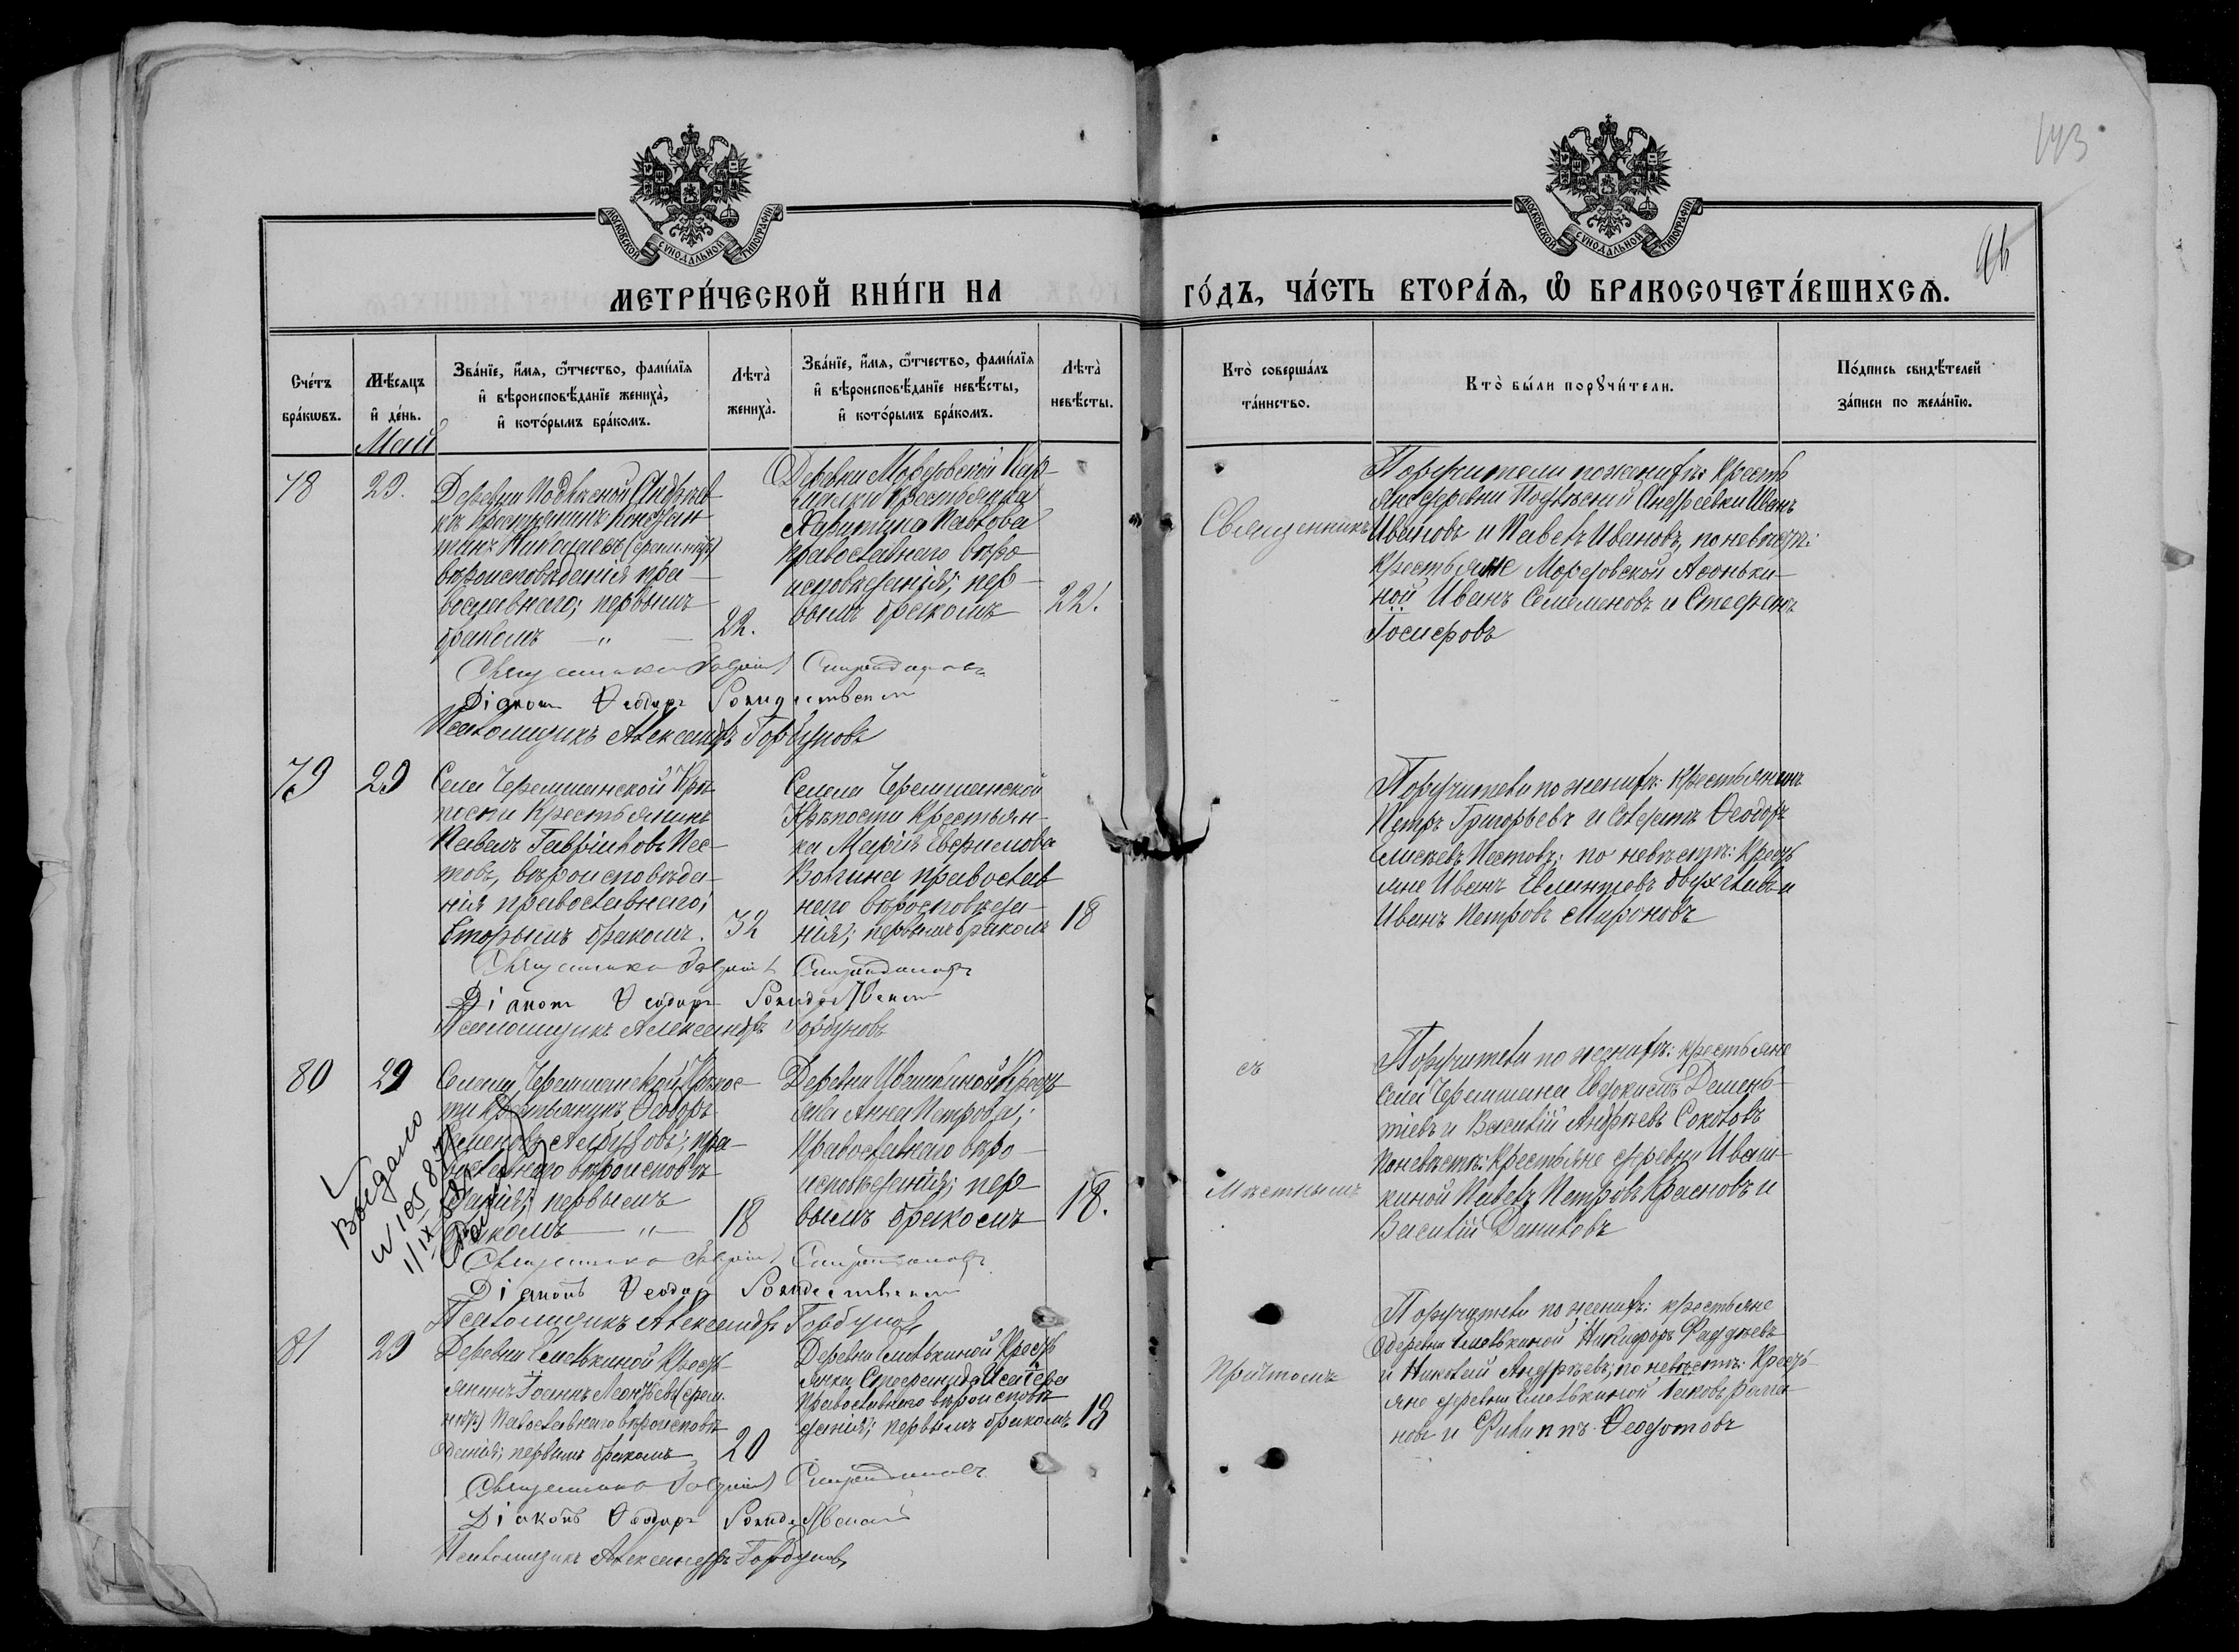 143
96
МОСКОВСКОЙ СѴНОДАЛЬНОЙ ТИПОГРАФІИ
МОСКОВСКОЙ СѴНОДАЛЬНОЙ ТИПОГРАФІИ
МЕТРИ́ЧЕСКОЙ КНИ́ГИ НА
ГО́ДЪ, ЧА́СТЬ ВТОРА́Ѧ, Ѽ БРАКОСОЧЕТА́ВШИХСѦ.
Сче́тъ
бра́кѡвъ.
Мѣ́сѧцъ
и҆ де́нь.
Зва́нїе, и҆́мѧ, ѻ҆́тчество, фами́лїѧ
и҆ вѣроисповѣ́данїе жениха̀,
и҆ кото́рымъ бра́комъ.
Лѣта̀
жениха̀.
Зва́нїе, и҆́мѧ, ѻ҆́тчество, фами́лїѧ
и҆ вѣроисповѣ́данїе невѣ́сты,
и҆ кото́рымъ бра́комъ.
Лѣта̀
невѣ́сты.
Кто̀ соверша́лъ
та́инство.
Кто̀ бы́ли порꙋчи́тели.
По́дпись свидѣ́телей
за́писи по жела́нїю.
Май
78
29.
Деревни Подлѣсной Андреев
ки крестьянинъ Констан
тинъ Николаевъ
вѣроисповѣданія пра-
вославнаго; первымъ
бракомъ — „ —
22.
Деревни Мордовской
крестьянка
Харитина Павлова
православнаго вѣро
исповѣданія; пер-
вымъ бракомъ
22.
Священникъ
Поручители по женихѣ: кресть
яне деревни Подлѣсной Андреевки Иванъ
Ивановъ и Павелъ Ивановъ, по невѣстѣ:
крестьяне Мордовской Афоньки-
ной Иванъ Семеменовъ и Стефанъ
Іосифовъ
Священникъ Гавріилъ Спиридоновъ
Діаконъ Ѳеодоръ Рождественскій
Псаломщикъ Александръ Горбуновъ
79
29
Села Черемшанской Крѣ-
пости крестьянинъ
Павелъ Гавріиловъ Пес-
товъ, вѣроисповѣда-
нія православнаго;
вторымъ бракомъ.
32
Селела Черемшанской
Крѣпости крестьян-
ка Марія Евфимова
Волгина православ
наго вѣроисповѣда-
нія; первымъ бракомъ
18
Поручители по женихѣ: крестьянинъ
Петръ Григорьевъ и Солдатъ Ѳеодоръ
Елисѣевъ Пестовъ; по невѣстѣ: кресть
яне Иванъ и
Иванъ Петровъ Мироновъ
Священникъ Гавріилъ Спиридоновъ
Діаконъ Ѳеодоръ Рождественскій
Псаломщикъ Александръ Горбуновъ
80
29
Селела Черемшанской Крѣпос-
ти крестьянинъ Ѳеодоръ
Семеновъ пра-
вославнаго вѣроисповѣ
данія; первымъ
бракомъ — „ —
18
Деревни Ивашкиной кресть
янка Анна Петрова;
Православнаго вѣро-
исповѣданія; пер-
вымъ бракомъ
18.
съ
Мѣстнымъ
Поручители по женихѣ: крестьяне
села Черемшана Евдокимъ Демень-
тіевъ и Василій Андреевъ Соколовъ
По невѣстѣ: крестьяне деревни Иваш-
киной Павелъ Петровъ Красновъ и
Василій Даниловъ
Выдано
Священникъ Гавріилъ Спиридоновъ
Діаконъ Ѳеодоръ Рождественскій
Псаломщикъ Александръ Горбуновъ
81
29
Деревни Емелькиной кресть-
янинъ Іоаннъ Леонтьевъ
Павославнаго вѣроисповѣ
данія; первымъ бракомъ
20
Деревни Емелькиной кресть
янка Стефанида Исаева
Православнаго вѣроисповѣ
данія; первымъ бракомъ
18
Причтомъ
Поручители по женихѣ: крестьяне
деревни Емелькиной Никифоръ Фаддѣевъ
и Николай Андреевъ; по невѣстѣ: кресть-
яне деревни Емелькиной Іаковъ Рома-
новъ и Филиппъ Ѳеодотовъ
Священникъ Гавріилъ Спиридоновъ
Діаконъ Ѳеодоръ Рождественскій
Псаломщикъ Александръ Горбуновъ